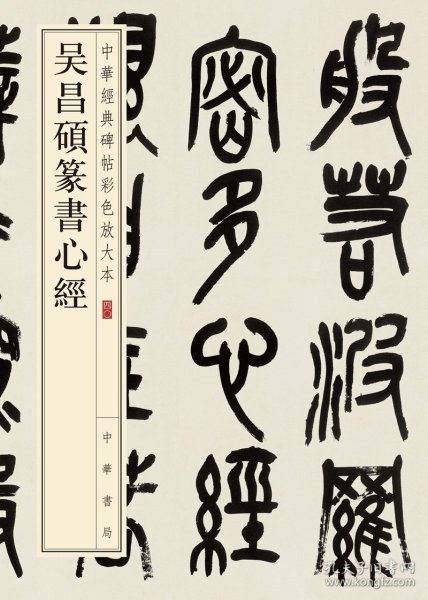 般若波羅
密多心經
中華經典碑帖彩色放大本 四〇
中華書局
吴昌碩篆書心經
孔夫子旧书网
www.kongfz.com